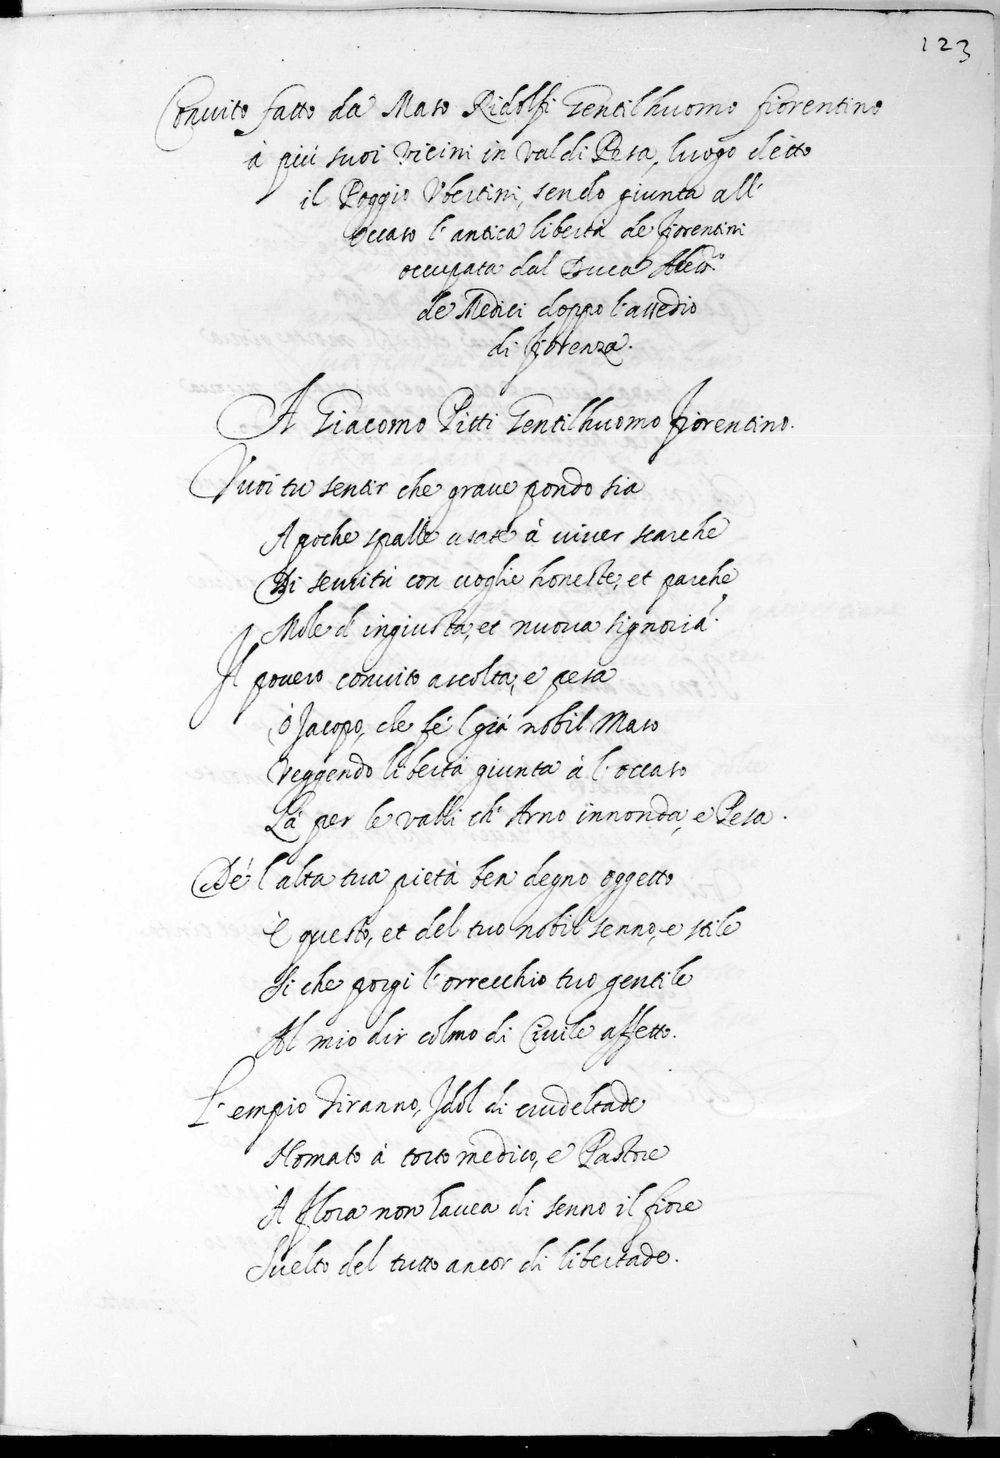 123
Conuito fatto da Maso Ridolfi Gentilhuomo fiorentino
à più suoi vicini in Val di Pesa, luogo detto
il Poggio Vbertini, sendo giunta all'
occaso l'antica libertà de fiorentini
occupata dal Duca Aless.ro
de Medici doppo l'assedio
di fiorenza.
A Giacomo Pitti Gentilhuomo fiorentino.
Vuoi tu sentir che graue pondo sia
A poche spalle usate à viuer scarche
Di seruitù con voglie honeste, et parche
Mole d'ingiusta, et nuoua signoria?
Il pouero conuito ascolta, e pesa
ò Jacopo, che fè 'l già nobil Maso
Veggendo libertà giunta à l'occaso
Là per le valli ch'Arno innonda, e Pesa.
Dè l'alta tua pietà ben degno oggetto
è questo, et del tuo nobil senno, e stile
Si che porgi l'orrecchio tuo gentile
Al mio dir colmo di Ciuile affetto.
L'empio Tiranno, Idol di crudeltade
Nomato à torto medico, e Pastore
A flora non hauea di senno il fiore
Suelto del tutto ancor di libertade.